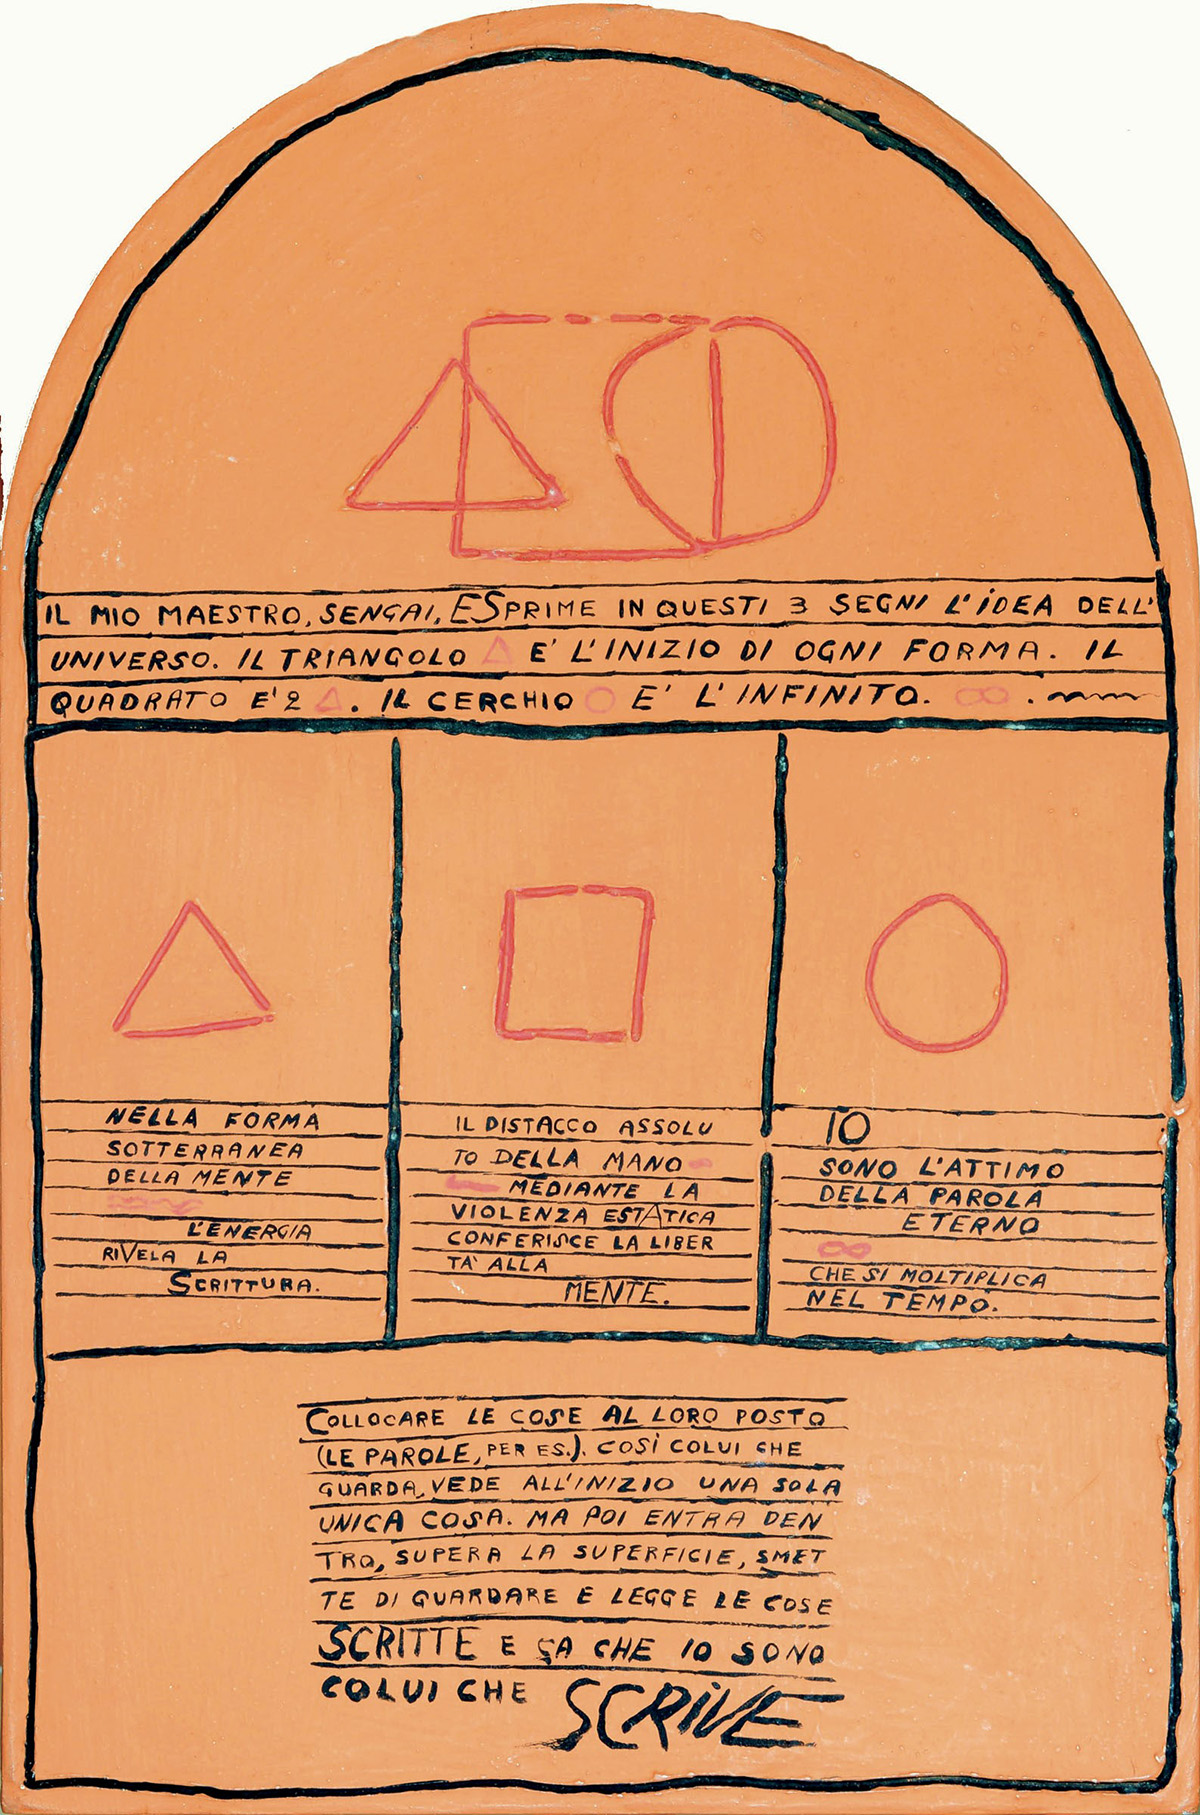 IL MIO MAESTRO, SENGAI, ESPRIME IN QUESTI 3 SEGNI L'IDEA DELL'
UNIVERSO. IL TRIANGOLO △ E' L'INIZIO DI OGNI FORMA. IL
QUADRATO E' 2 △. IL CERCHIO ○ E' L'INFINITO. ∞ .
NELLA FORMA
SOTTERRANEA
DELLA MENTE
L'ENERGIA
RIVELA LA
SCRITTURA.
IL DISTACCO ASSOLU
TO DELLA MANO
MEDIANTE LA
VIOLENZA ESTATICA
CONFERISCE LA LIBER
TA' ALLA
MENTE.
IO
SONO L'ATTIMO
DELLA PAROLA
ETERNO
∞
CHE SI MOLTIPLICA
NEL TEMPO.
COLLOCARE LE COSE AL LORO POSTO
(LE PAROLE, PER ES.). COSÌ COLUI CHE
GUARDA, VEDE ALL'INIZIO UNA SOLA
UNICA COSA. MA POI ENTRA DEN
TRO, SUPERA LA SUPERFICIE, SMET
TE DI GUARDARE E LEGGE LE COSE
SCRITTE E SA CHE IO SONO
COLUI CHE SCRIVE